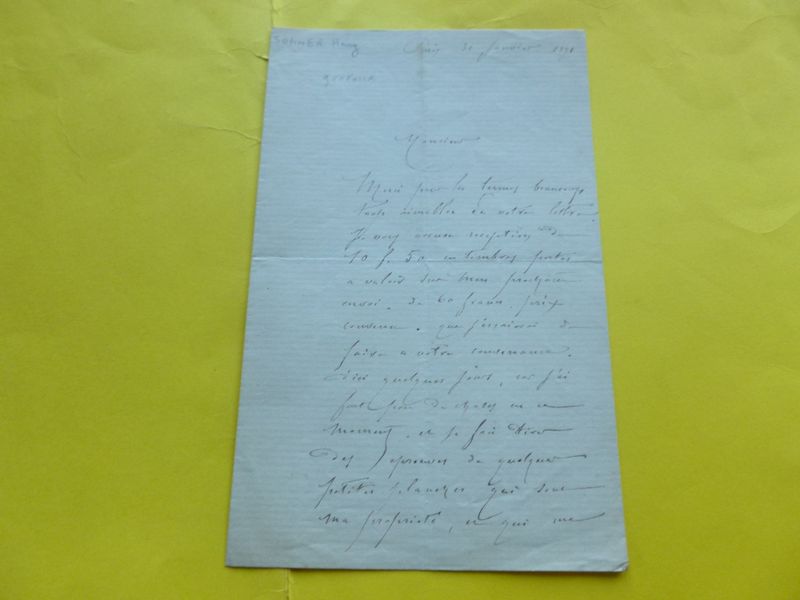 SOMMER Henry
30 Janvier 1891
graveur
Monsieur
Merci pour les termes beaucoup
trop aimables de votre lettre.
Je vous accuse reception de
10 f. 50 en timbres postes
a valoir sur mon prochain
envoi. de 60 francs. prix
convenu. que j'essaierai de
faire a votre convenance.
d'ici quelques jours, car j'ai
fort peu de choses en ce
moment. et je fais tirer
des epreuves de quelques
petites planches qui sont
ma propriete, et qui me